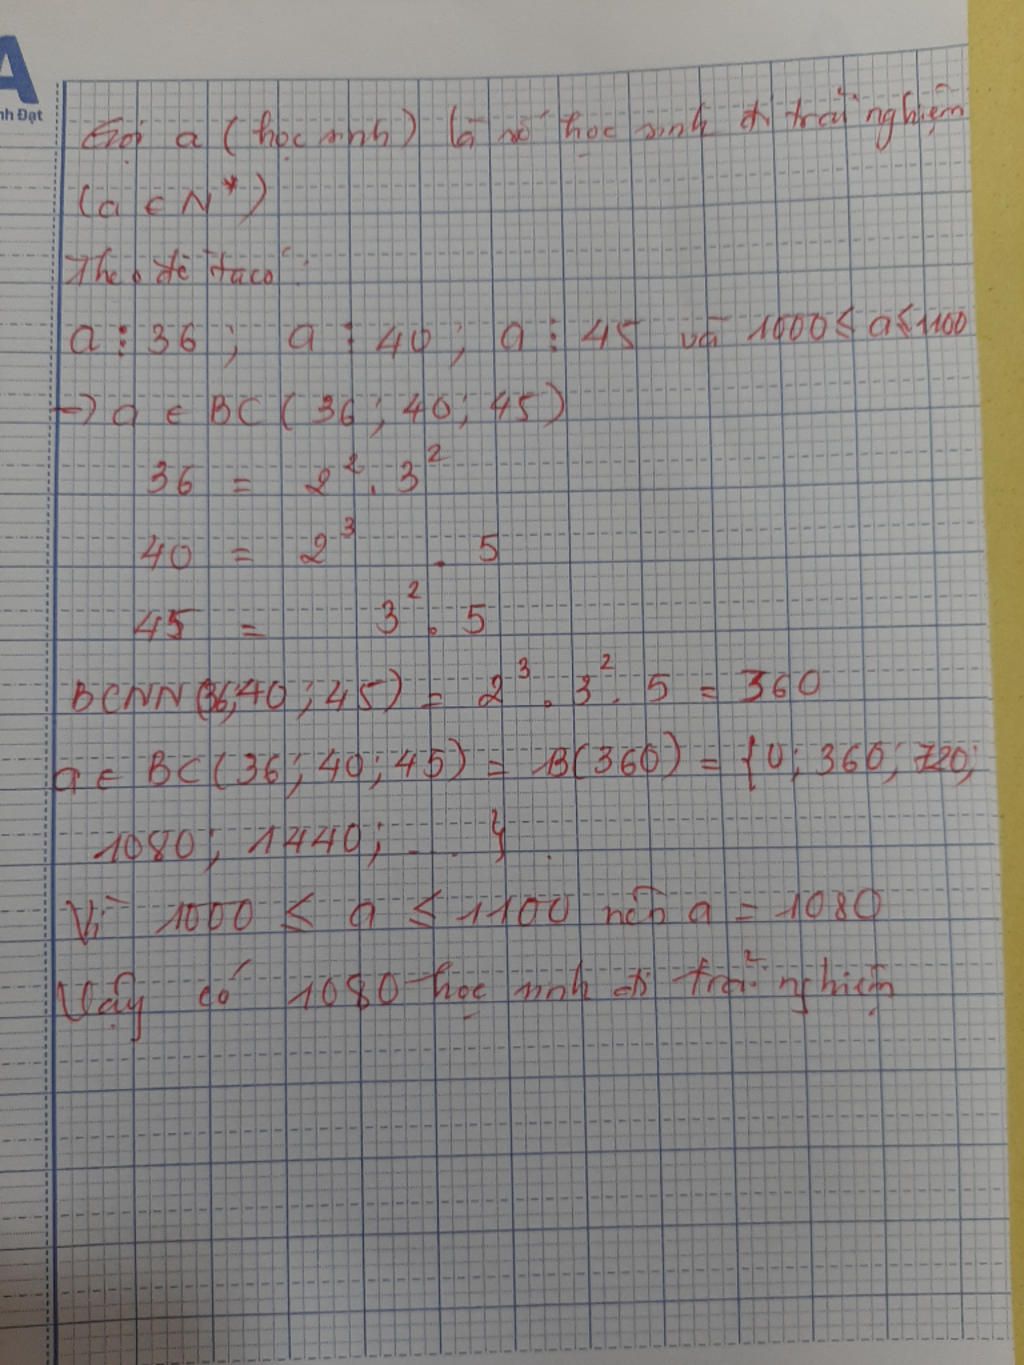 A
nh Đạt
Gọi a (học sinh) là số học sinh đi trải nghiệm
(a ∈ N*)
Theo đề ta có:
a ⋮ 36 ; a ⋮ 40 ; a ⋮ 45 và 1000 ≤ a ≤ 1100
→ a ∈ BC (36 ; 40 ; 45)
36 = 2² . 3²
40 = 2³ . 5
45 = 3² . 5
BCNN (36; 40 ; 45) = 2³ . 3² . 5 = 360
a ∈ BC (36 ; 40 ; 45) = B(360) = {0 ; 360 ; 720 ;
1080 ; 1440 ; ... }
Vì 1000 ≤ a ≤ 1100 nên a = 1080
Vậy có 1080 học sinh đi trải nghiệm